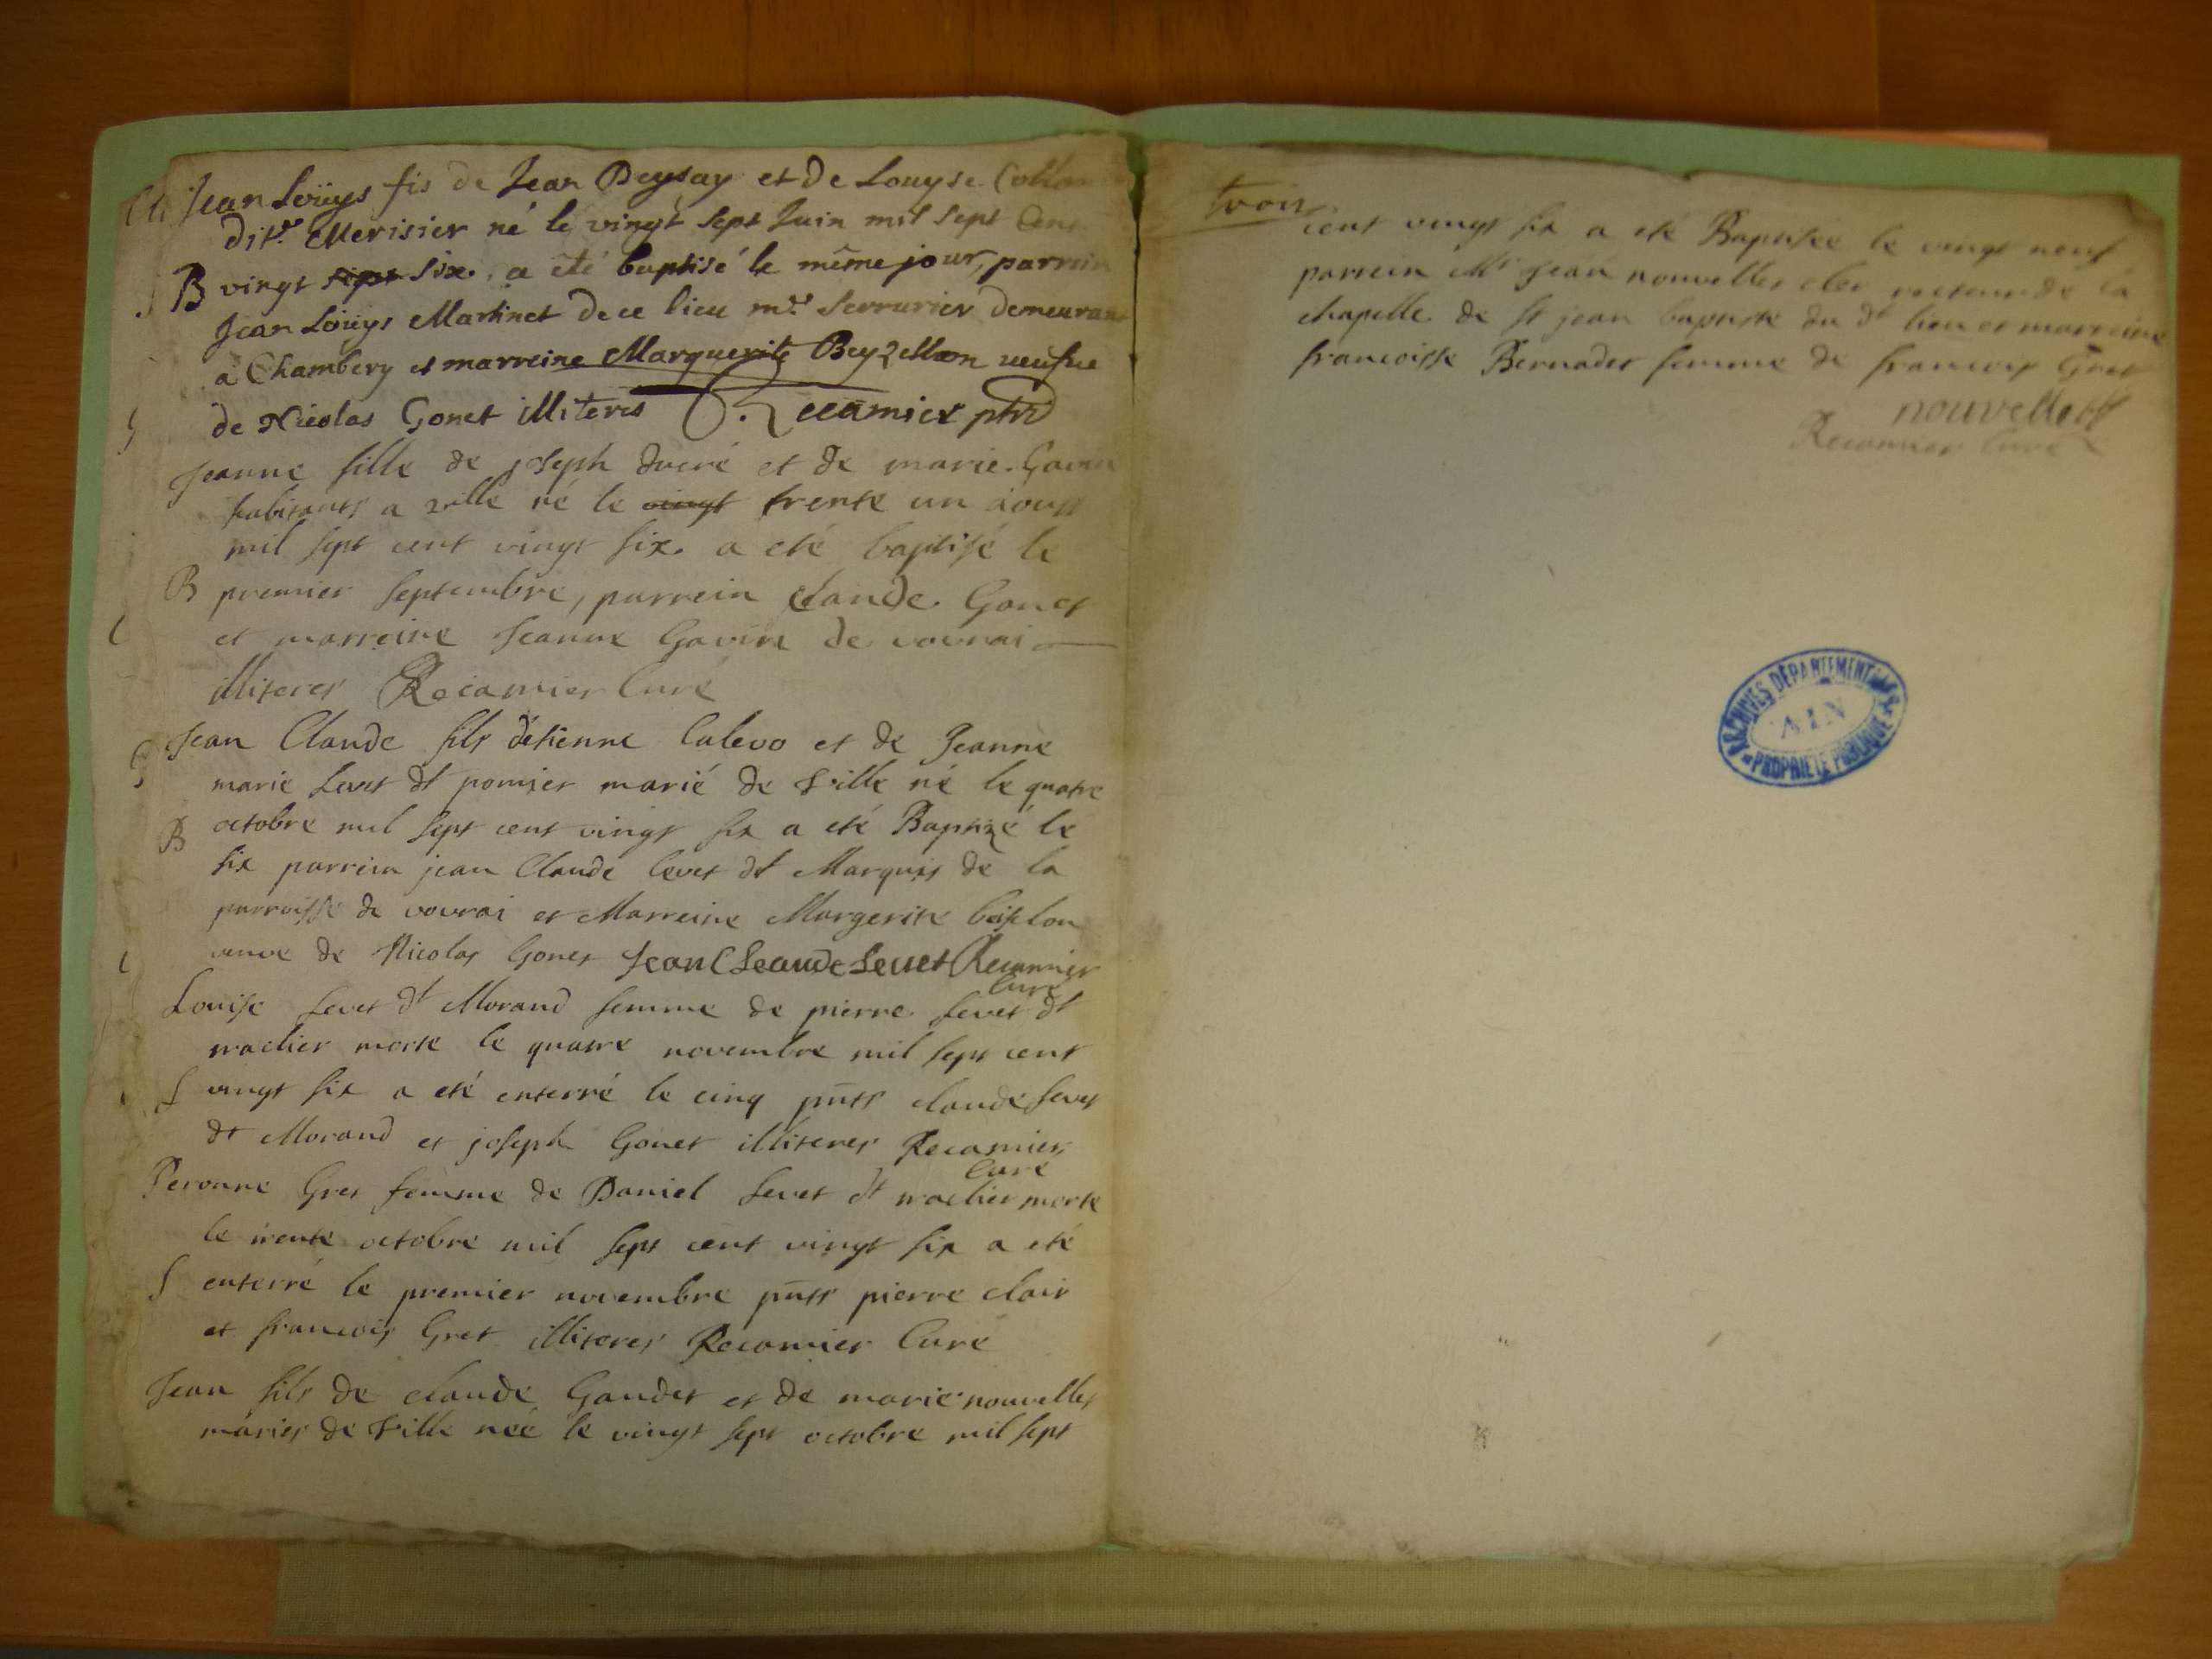 Jean Loüys fis de Jean Beysay et de Louyse Collon
ditte Merisier né le vingt sept Juin mil sept Cens
B vingt sept six. a été baptisé le même jour, parrein
Jean Loüys Martinet de ce lieu mre Serrurier demeurant
à Chambery et marreine Marguerite Beyzellon veufue
de Nicolas Gonet illiteres Recamier ptre
Jeanne fille de joseph ducré et de marie Gavin
habitants a ville né le vingt trente un aoust
mil sept cent vingt six. a eté baptisé le
B premier septembre, parrein claude Gonet
et marreine Jeanne Gavin de vovrai
illiteres Recamier Curé
Jean Claude fils détienne Calevo et de Jeanne
marie Levet dt pomier marié de ville né le quatre
B octobre mil sept cent vingt six a eté Baptizé le
six parrein jean Claude levet dt Marquis de la
parroisse de vovrai et Marreine Margerite
veuve de Nicolas Gonet Jean Cleaude Levet Recamier
Curé
Louise Levet dt Morand femme de pierre Levet dt
maclier morte le quatre novembre mil sept cent
S vingt six a eté enterré le cinq pnts claude Levet
dt Morand et joseph Gonet illiteres Recamier
Curé
Peronne Gret femme de Daniel Levet dt maclier morte
le trente octobre mil sept cent vingt six a eté
S enterré le premier novembre pnts pierre clair
et francois Gret illiteres Recamier Curé
Jean fils de claude Gaudet et de marie nouvelles
mariés de ville née le vingt sept octobre mil sept
trois
cent vingt six a eté Baptisée le vingt neuf
parrein Mr Jean nouvelles clerc recteur de la
chapelle de St jean baptiste du dt lieu et marreine
francoisse Bernadet femme de francois Gret
nouvelles
Recamier Curé
ARCHIVES DÉPARTEMENTALES
AIN
PROPRIÉTÉ PUBLIQUE